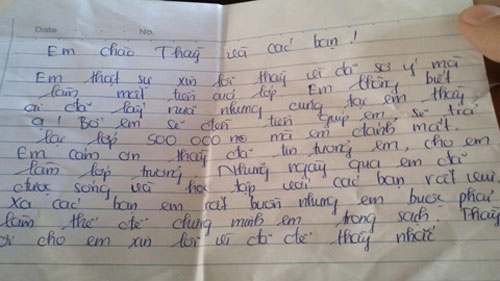 Date No.
Em chào Thầy và các bạn!
Em thật sự xin lỗi thầy vì đã sơ ý mà
làm mất tiền của lớp. Em không biết
ai đã lấy nưa nhưng cũng tại em thầy
ạ! Bởi em sẽ đền tiền quỹ em sẽ trả
lại lớp 500 000 mà em đánh mất.
Em cảm ơn thầy đã tin tưởng em, cho em
làm lớp trưởng. Những ngày qua em đã
được sống và học tập với các bạn rất vui.
Xa các bạn em rất buồn nhưng em buộc phải
làm thế để chứng minh em trong sạch. Thầy
cho em xin lỗi vì đã để thầy nhắc